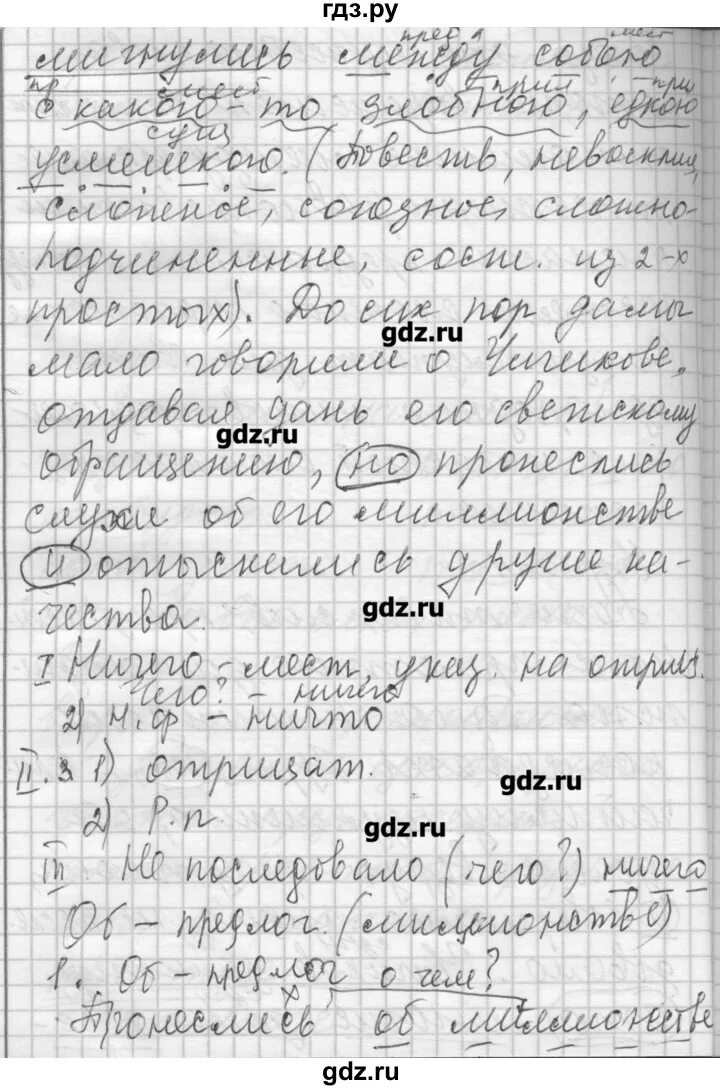 гдз.ру
пред. мест
мигнулись между собою
пр. мест прил при
с какого-то злобного, едкою
сущ
усмешкою. (Повеств, невосклиц,
сложное, союзное, сложно-
подчиненние, сост. из 2-х
простых). До сих пор дамы
gdz.ru
мало говорили о Чичикове,
отдавая дань его светскому
gdz.ru
обращению, но пронеслись
слухи об его миллионстве
и отыскались другие ка-
чества.
gdz.ru
I Ничего - мест, указ. на отриц.
Чего? - ничего
2) н.ф - ничто
II. 3. 1) отрицат.
gdz.ru
2) Р.п.
gdz.ru
III. Не последовало (чего?) ничего
Об - предлог. (миллионстве)
1. Об - предлог о чем?
Х
Пронеслись об миллионстве
gdz.ru